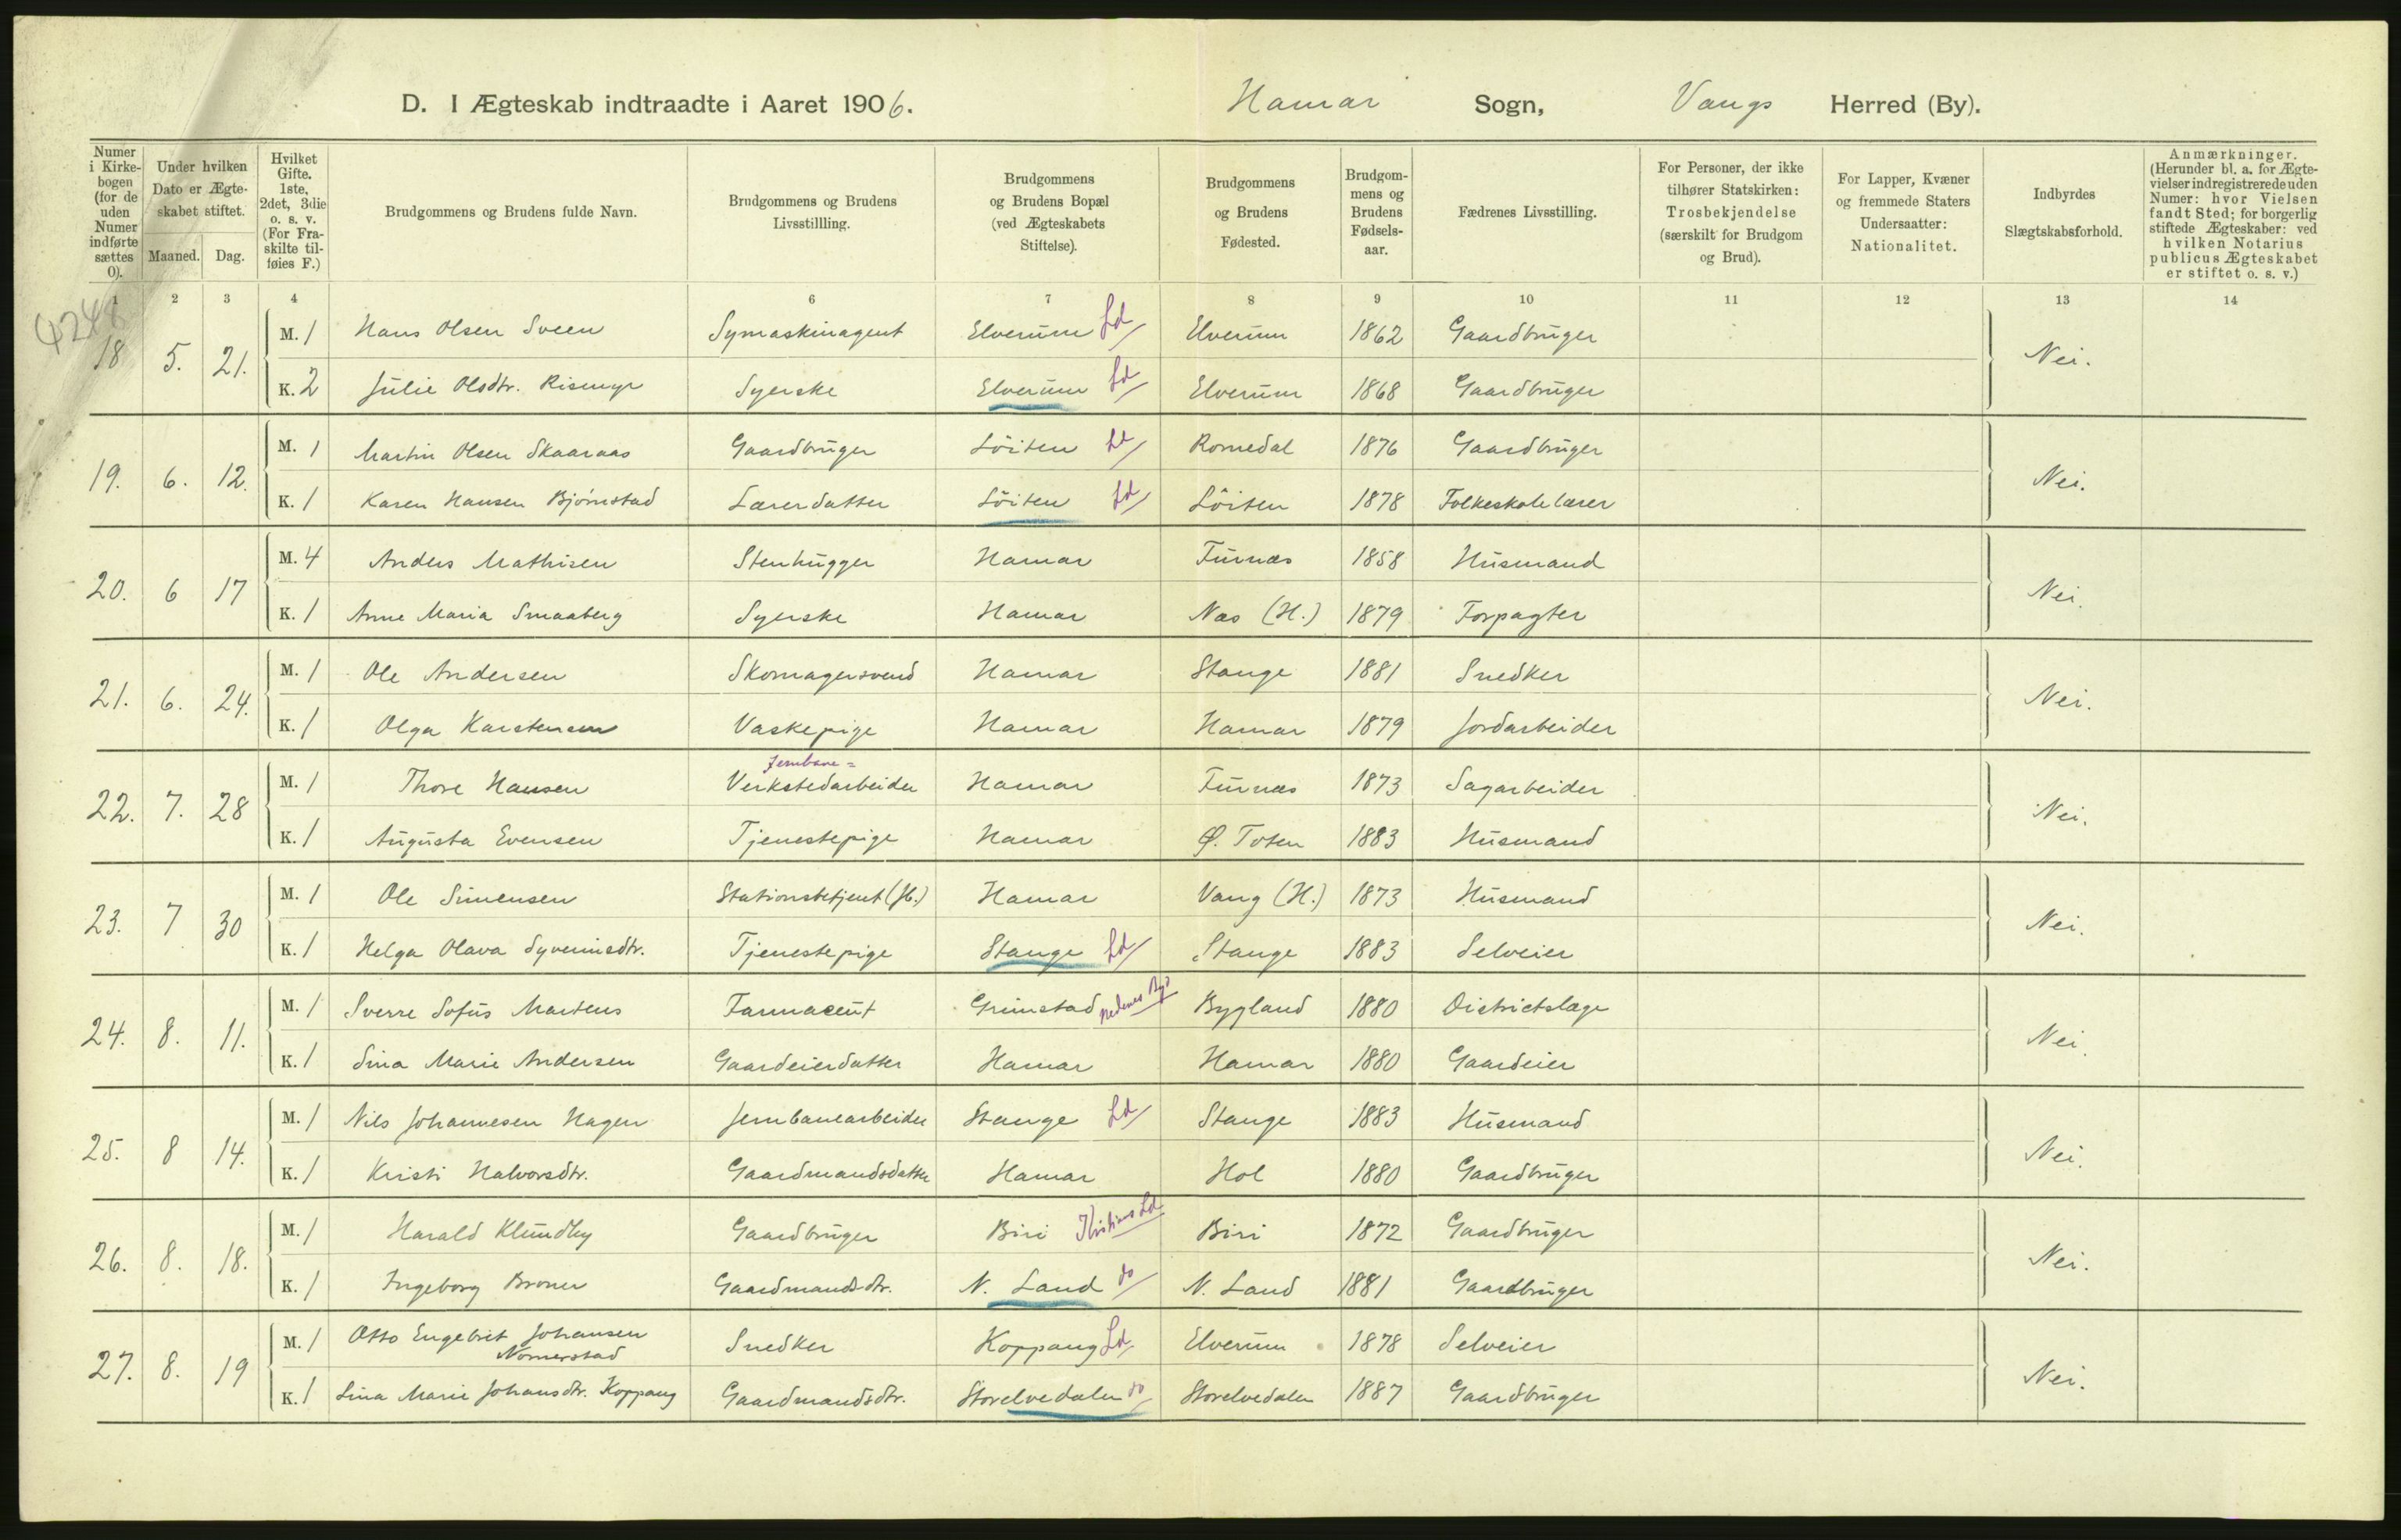 D. I Ægteskab indtraadte i Aaret 1906. Hamar Sogn, Vangs Herred (By).
Numer i Kirkebogen (for de uden Numer indførte sættes 0).
Under hvilken Dato er Ægteskabet stiftet.
Maaned. Dag.
Hvilket Gifte. 1ste, 2det, 3die o. s. v. (For Fraskilte tilføies F.)
Brudgommens og Brudens fulde Navn.
Brudgommens og Brudens Livsstillling.
Brudgommens og Brudens Bopæl (ved Ægteskabets Stiftelse).
Brudgommens og Brudens Fødested.
Brudgommens og Brudens Fødselsaar.
Fædrenes Livsstilling.
For Personer, der ikke tilhører Statskirken: Trosbekjendelse (særskilt for Brudgom og Brud).
For Lapper, Kvæner og fremmede Staters Undersaatter: Nationalitet.
Indbyrdes Slægtskabsforhold.
Anmærkninger. (Herunder bl. a. for Ægtevielser indregistrerede uden Numer: hvor Vielsen fandt Sted; for borgerlig stiftede Ægteskaber: ved hvilken Notarius publicus Ægteskabet er stiftet o. s. v.)
1 2 3 4 6 7 8 9 10 11 12 13 14
4248
18 5. 21. M. 1 Hans Olsen Sveen Symaskinagent Elverum Ld Elverum 1862 Gaardbruger Nei.
K. 2 Julie Olsdtr. Risemyr Syerske Elverum Ld Elverum 1868 Gaardbruger
19. 6. 12. M. 1 Martin Olsen Skaaraas Gaardbruger Löiten Ld Romedal 1876 Gaardbruger Nei.
K. 1 Karen Hansen Bjørnstad Lærerdatter Löiten Ld Löiten 1878 Folkeskolelærer
20. 6 17 M. 4 Anders Mathisen Stenhugger Hamar Furnæs 1858 Husmand Nei.
K. 1 Anne Maria Smaaberg Syerske Hamar Næs (H.) 1879 Forpagter
21. 6. 24. M. 1 Ole Andersen Skomagersvend Hamar Stange 1881 Snedker Nei.
K. 1 Olga Karstensen Vaskepige Hamar Hamar 1879 Jordarbeider
Jernbane=
22. 7. 28 M. 1 Thore Hansen Verkstedarbeider Hamar Furnæs 1873 Sagarbeider Nei.
K. 1 Augusta Evensen Tjenestepige Hamar Ø. Toten 1883 Husmand
23. 7 30 M. 1 Ole Simensen Stationsbetjent (H.) Hamar Vang (H.) 1873 Husmand Nei.
K. 1 Helga Olava Syverinsdtr. Tjenestepige Stange Ld Stange 1883 Selveier
24. 8. 11. M. 1 Sverre Sofus Martens Farmaceut Grimstad Nedenes By Bygland 1880 Districtslæge Nei.
K. 1 Sina Marie Andersen Gaardeierdatter Hamar Hamar 1880 Gaardeier
25. 8 14. M. 1 Nils Johannesen Hagen Jernbanearbeider Stange Ld Stange 1883 Husmand Nei.
K. 1 Kristi Halvorsdtr. Gaardmandsdatter Hamar Hol 1880 Gaardbruger
26. 8. 18. M. 1 Harald Klundby Gaardbruger Biri Kristians Ld Biri 1872 Gaardbruger Nei.
K. 1 Ingeborg Broner Gaardmandsdtr. N. Land do N. Land 1881 Gaardbruger
27. 8. 19 M. 1 Otto Engebret Johansen Snedker Koppang Ld Elverum 1878 Selveier Nei.
Nomerstad
K. 1 Lina Marie Johansdtr. Koppang Gaardmandsdtr. Storelvedalen do Storelvedalen 1887 Gaardbruger